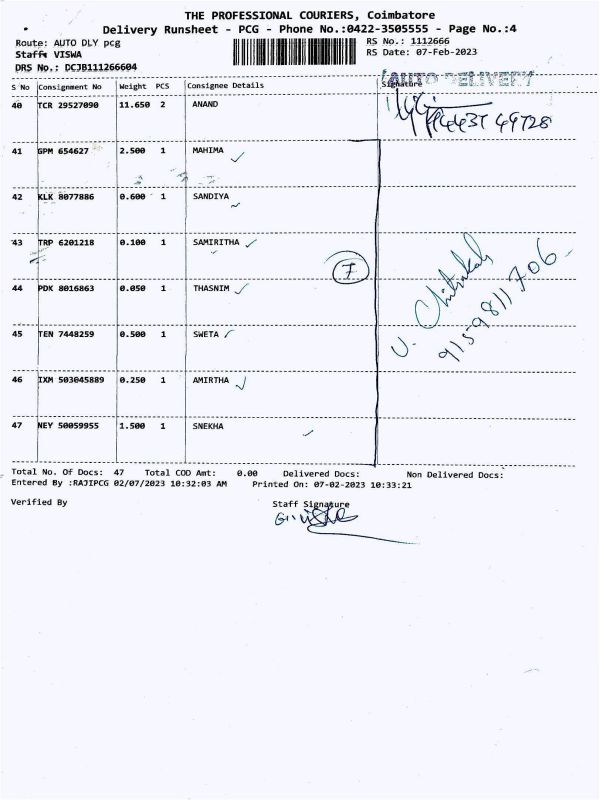 THE PROFESSIONAL COURIERS, Coimbatore
Delivery Runsheet - PCG - Phone No.:0422-3505555 - Page No.:4
Route: AUTO DLY pcg RS No.: 1112666
Staff: VISWA RS Date: 07-Feb-2023
DRS No.: DCJB111266604
AUTO DELIVERY
S No Consignment No Weight PCS Consignee Details Signature
40 TCR 29527090 11.650 2 ANAND
94437 49728
41 GPM 654627 2.500 1 MAHIMA
42 KLK 8077886 0.600 1 SANDIYA
43 TRP 6201218 0.100 1 SAMIRITHA
7
44 PDK 8016863 0.050 1 THASNIM
9159811706
45 TEN 7448259 0.500 1 SWETA
46 IXM 503045889 0.250 1 AMIRTHA
47 NEY 50059955 1.500 1 SNEKHA
Total No. Of Docs: 47 Total COD Amt: 0.00 Delivered Docs: Non Delivered Docs:
Entered By :RAJIPCG 02/07/2023 10:32:03 AM Printed On: 07-02-2023 10:33:21
Verified By Staff Signature